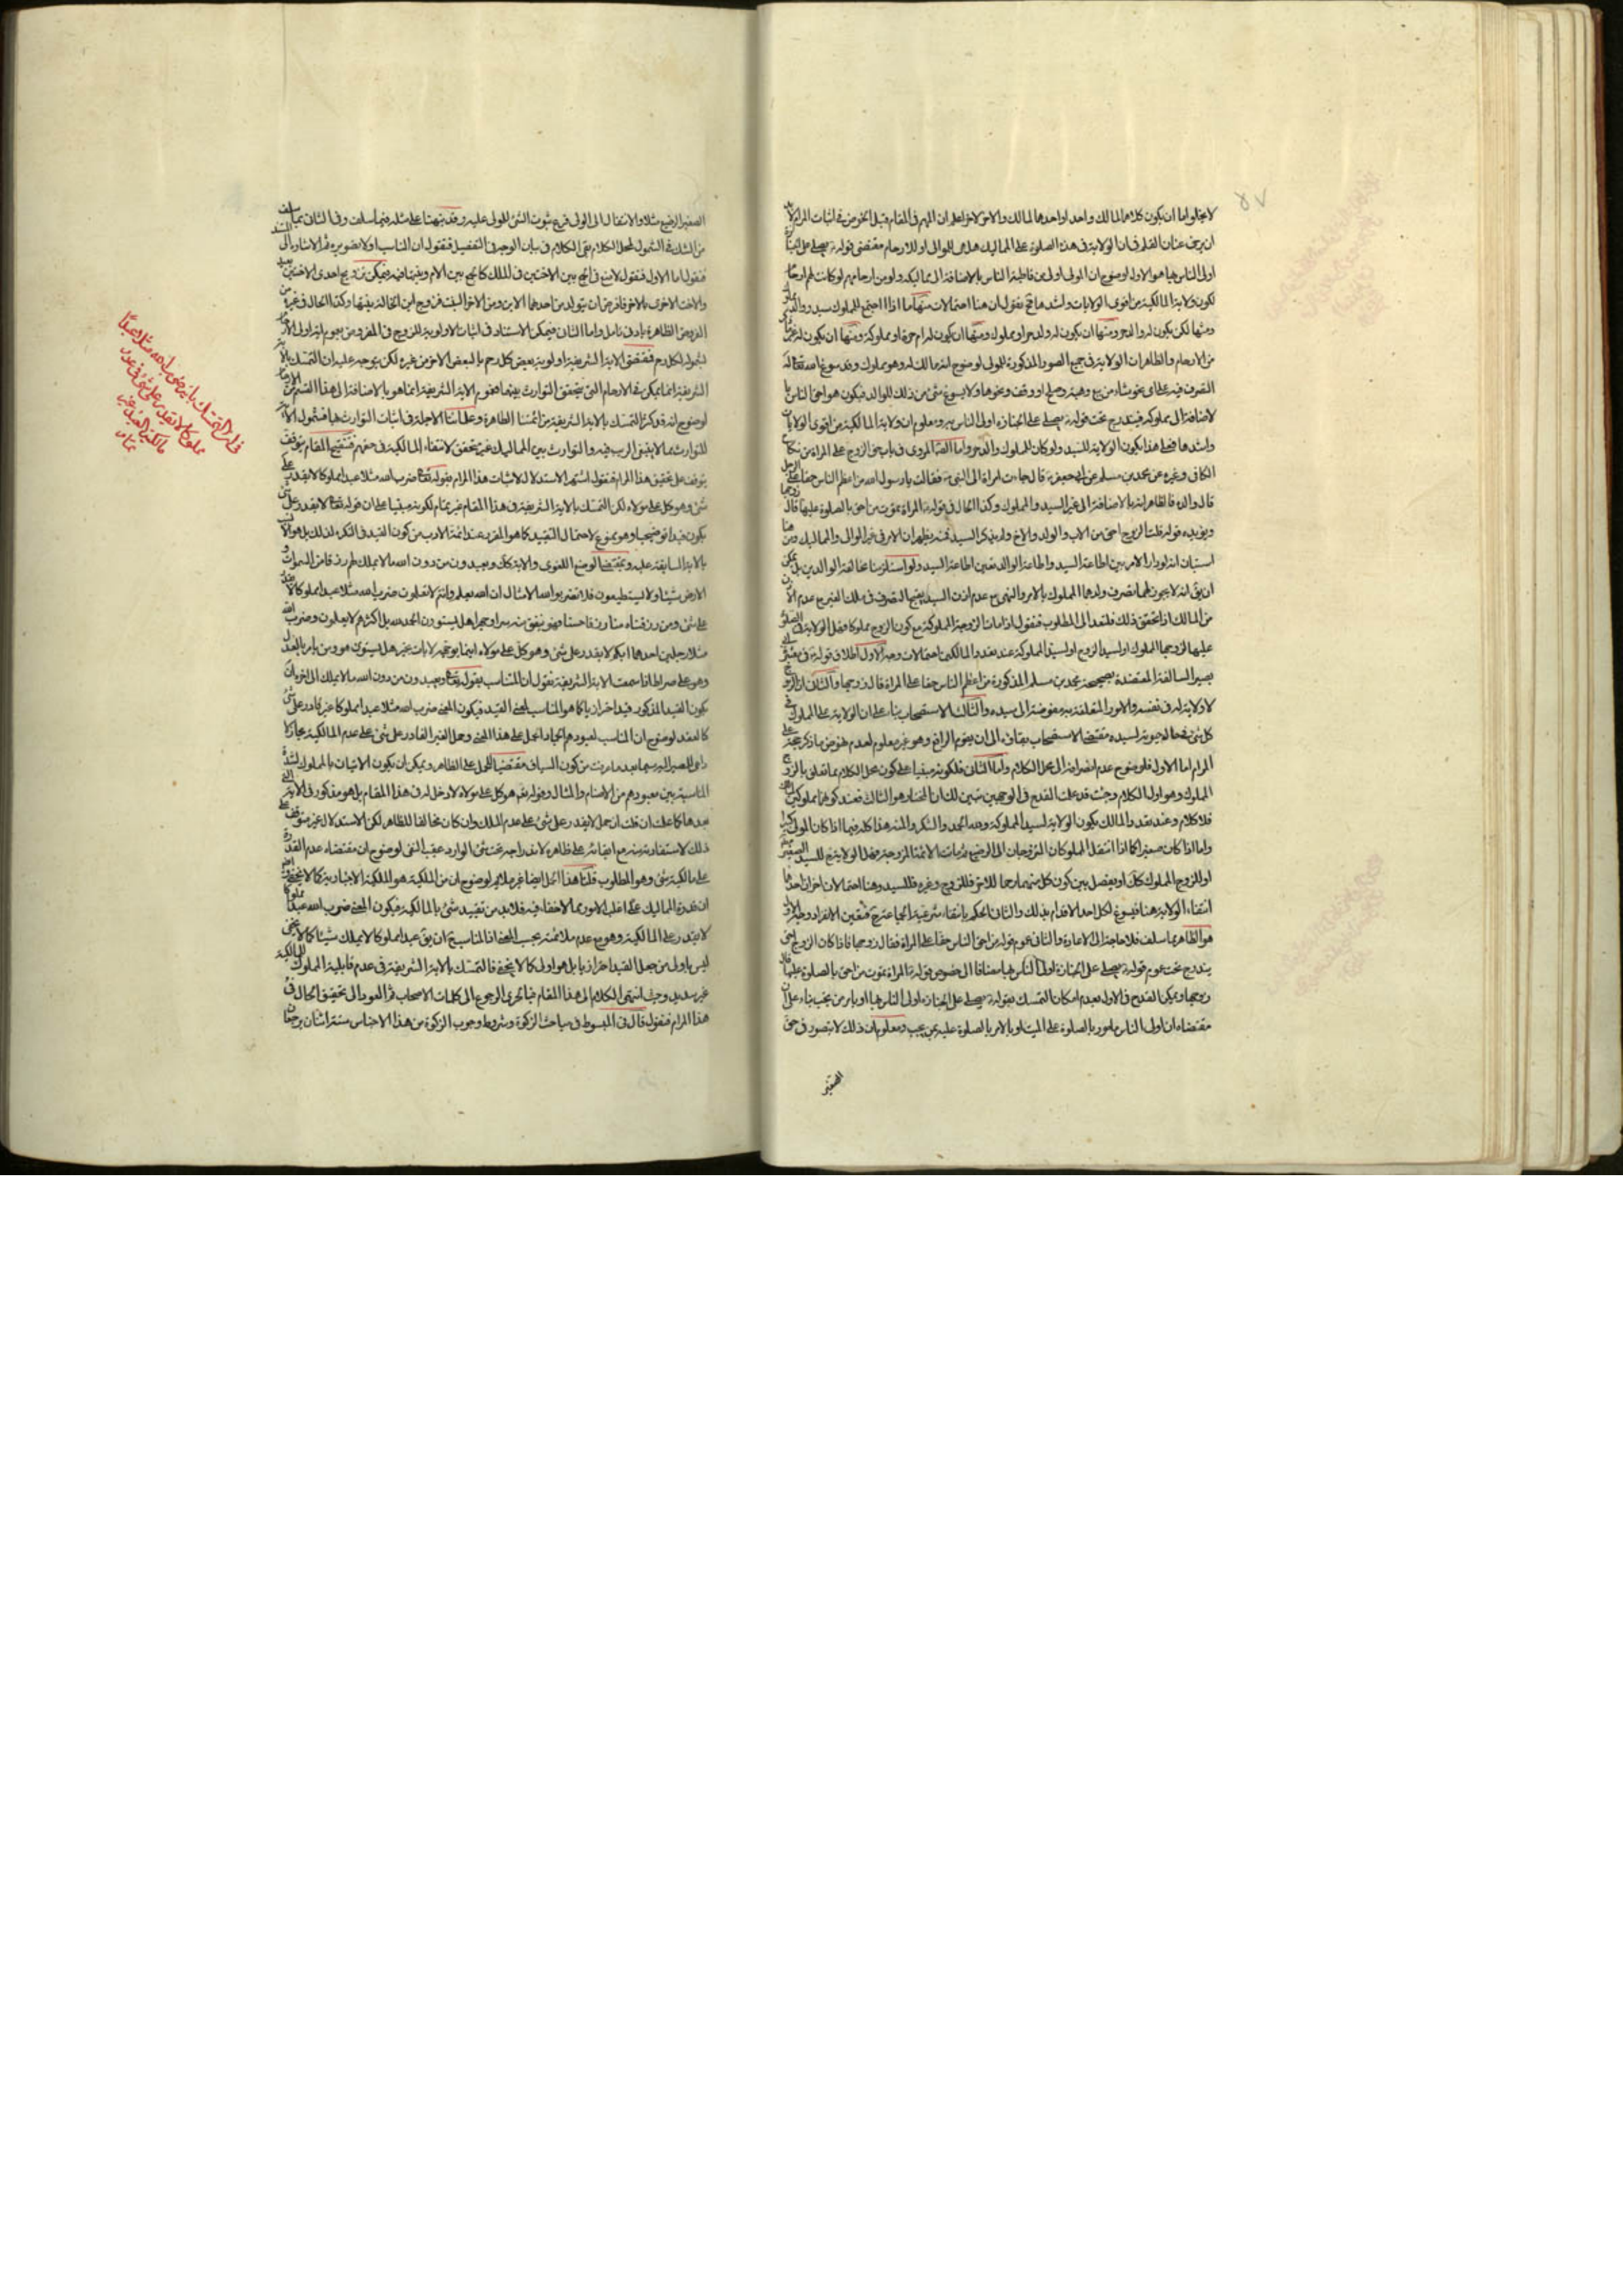 ٨٧
لا يخلو اما ان يكون كلاهما لمالك واحد او احدهما لمالك والاخر لاخر اعلم ان المهم فى المقام قبل الخوض فى اثبات المرام
ان عنان القلم فى ان الولاية فى هذه الصلوة على المماليك هل هى للموالى او للارحام مقتضى قوله يصلى على الجنازة
اولى الناس بها هو الاول لوضوح ان المولى اولى من قاطبة الناس بالاضافة الى مماليكه ولو من ارحامهم لو كانت لهم ارحام
لكون ولاية المالكية من اقوى الولايات واشدها ثم نقول ان هنا احتمالات منها ما اذا اجتمع للمملوك سيد ووالد
ومنها ان يكون له ولد حر او مملوك ومنها ان يكون له ام حرة او مملوكة ومنها ان يكون له غيرها
من الارحام والظاهر ان الولاية فى جميع الصور المذكورة للمولى لوضوح انه مالك له وهو مملوك وقد سوغ الله تعالى له
التصرف فيه على اى نحو شاء من بيع وهبة وصلح او وقف ونحوها ولا يسوغ شئ من ذلك للوالد فيكون هو احق الناس با
لاضافة الى مملوكه فيندرج تحت قوله يصلى على الجنازة اولى الناس بها ومعلوم ان ولاية المالكية من اقوى الولايات
واشدها فعلى هذا يكون الولاية للسيد ولو كان للمملوك والد حر واما المروى فى باب حق الزوج على المراة من نكاح
الكافى وغيره عن محمد بن مسلم عن ابى جعفر قال جاءت امراة الى النبى فقالت يا رسول الله من اعظم الناس حقا على الرجل
قال والده فالظاهر انه بالاضافة الى غير السيد والمملوك وكذا الحال فى قوله المراة تموت من احق بالصلوة عليها قال زوجها
ويؤيده قوله قلت الزوج احق من الاب والولد والاخ ولم يذكر السيد فمنه يظهر ان الامر فى غير الموالى والمماليك ومن هنا
استبان انه لو دار الامر بين اطاعة السيد واطاعة الوالد تعين اطاعة السيد ولو استلزمنا مخالفة الوالدين بل يمكن
ان يق انه لا يجوز لهما تصرف ولدهما المملوك بالامر والنهى مع عدم اذن السيد التصرف فى ملك الغير مع عدم الاذن
من المالك اذا تحقق ذلك فلنعد الى المطلوب فنقول اذا ماتت الزوجة المملوكة مع كون الزوج مملوكا فهل الولاية فى الصلوة
عليها لزوجها المملوك او لسيد الزوج او لسيد المملوكة عند تعدد المالكين احتمالات وجه الاول اطلاق قوله فى
بصير السالفة المعتضدة بصحيحة محمد بن مسلم المذكورة من اعظم الناس حقا على المراة قال زوجها والثانى ان الزوج
لا ولاية له فى نفسه والامور المتعلقة به مفوضة الى سيده والثالث الاستصحاب بناء على ان الولاية على المملوك فى
كل شئ فى لسيده مقتضى الاستصحاب بقاؤه الى ان يقوم الرافع وهو غير معلوم لعدم نهوض ما ذكر على
المرام اما الاول فلوضوح عدم انصرافه الى محل الكلام واما الثانى فلكونه مبنيا على كون محل الكلام مما تعلق بالزوج
المملوك وهو اول الكلام وحيث قد علمت القدح فى الوجهين تبين لك ان المختار هو الثالث فعند كونهما مملوكين
فلا كلام وعند تعدد المالك يكون الولاية لسيد المملوكة ولله الحمد والشكر والمنة هذا كله فيما اذا كان المولى كبيرا
واما اذا كان صغيرا كما اذا انتقل المملوكان المزوجان الى الرضيع ثم ماتت الامة المزوجة فهل الولاية للسيد الصغير
او للزوج المملوك كك او يفصل بين كون كل منهما رحما للاخر فللزوج وغيره فللسيد وهنا احتمالان اخران احدهما
انتفاء الولاية هنا فيسوغ لكل احد الاقدام بذلك والثانى الحكم بانتفاء شرعية الجماعة فتعين الانفراد وجه الاول
هو الظاهر مما سلف فلا حاجة الى الاعادة والثانى عموم قوله من احق الناس حقا على المراة فقال زوجها فاذا كان الزوج احق
يندرج تحت عموم قوله يصلى على الجنازة اولى الناس بها مضافا الى خصوص قوله المراة تموت من احق بالصلوة عليها قال
زوجها ويمكن القدح فى الاول بعدم امكان التمسك بقوله يصلى على الجنازة اولى الناس بها او يامر من يحب بناء على ان
مقتضاه ان اولى الناس مامور بالصلوة على الميت او بالامر بالصلوة عليه من يحب ومعلوم ان ذلك لا يتصور فى حق
الصغير
الصغير الرضيع مثلا والانتقال الى الولى فرع ثبوت الشئ للمولى عليه وقد نبهنا على مثله فيما سلف وفى الثانى بما سلف
من الشك فى الشمول لمحل الكلام بقى الكلام فى بيان الوجه فى التفصيل فنقول ان المناسب اولا تصويره ثم الاشارة الى
فنقول اما الاول فنقول لا منع فى الجمع بين الاختين فى الملك كالجمع بين الام وبنتها فيمكن تزويج احدى الاختين
والاخت الاخرى بالاخر فافرض ان يتولد من احدهما الابن ومن الاخر البنت فزوج ابن الخالة بنتها وكذا الحال فى غيره من
الفروض الظاهرة بادنى تامل واما الثانى فيمكن الاستناد فى اثبات الاولوية للزوج فى المفروض بعموم اية اولى الارحام
لشموله لكل رحم فمقتضى الاية الشريفة اولوية بعض كل رحم بالبعض الاخر من غيره لكن يتوجه عليه ان التمسك بالاية
الشريفة انما يمكن فى الارحام التى يتحقق التوارث بينها فعموم الاية الشريفة انما هو بالاضافة الى هذا القسم من الارحام
لوضوح انه قد كثر التمسك بالاية الشريفة من ائمتنا الطاهرة وعلمائنا الاجلة فى اثبات التوارث بها فشمول الاية
للتوارث مما لا ينبغى الريب فيه والتوارث بين المماليك غير متحقق لانتفاء المالكية فى حقهم فتنقيح المقام يتوقف
يتوقف على تحقيق هذا المرام فنقول اشتهر الاستدلال لاثبات هذا المرام بقوله تعالى ضرب الله مثلا عبدا مملوكا لا يقدر على
شئ وهو كل على مولاه لكن التمسك بالاية الشريفة فى هذا المقام غير تمام لكونه مبنيا على ان قوله تعالى لا يقدر على شئ
يكون قيدا توضيحيا وهو ممنوع لاحتمال التقييد كما هو المقرر عند ائمة الادب من كون القيد فى النكرة لذلك بل هو الانسب
بالاية السابقة عليه وبمقتضى الوضع اللغوى والاية كك ويعبدون من دون الله ما لا يملك لهم رزقا من السموات و
الارض شيئا ولا يستطيعون فلا تضربوا لله الامثال ان الله يعلم وانتم لا تعلمون ضرب الله مثلا عبدا مملوكا لا يقدر
على شئ ومن رزقناه منا رزقا حسنا فهو ينفق منه سرا وجهرا هل يستوون الحمد لله بل اكثرهم لا يعلمون وضرب الله
مثلا رجلين احدهما ابكم لا يقدر على شئ وهو كل على مولاه اينما يوجهه لا يات بخير هل يستوى هو ومن يامر بالعدل
وهو على صراط فاذا سمعت الاية الشريفة نقول ان المناسب بقوله تعالى ويعبدون من دون الله ما لا يملك الى اخره ان
يكون القيد المذكور قيدا احترازيا كما هو المناسب لمعنى القيد فيكون المعنى ضرب الله مثلا عبدا مملوكا غير قادر على شئ
كالمقعد لوضوح ان المناسب لمعبودهم الجماد الحمل على هذا المعنى وحمل الغير القادر على شئ على عدم المالكية مجاز لا
داعى للمصير اليه سيما بعد ما عرفت من كون السياق مقتضيا للحمل على الظاهر ويمكن ان يكون الاتيان بالمملوك لشدة
المناسبة بين معبودهم من الاصنام والمثال وقوله نعم هو كل على مولاه لا دخل له فى هذا المقام بل هو مذكور فى الاية التى
بعدها كما علمت ان قلت ان حمل لا يقدر على شئ على عدم الملك وان كان مخالفا للظاهر لكن الاستدلال غير متوقف على
ذلك لاستفادته منه مع ابقائه على ظاهره لاندراجه تحت شئ الوارد عقيب النفى لوضوح ان مقتضاه عدم القدرة
على مالكية شئ وهو المطلوب قلنا هذا الحمل ايضا غير ملائم لوضوح ان من الملكية هو الملكية الاختيارية كما لا يخفى
ان قدرة المماليك على اغلب الامور مما لا خفاء فيه فلا بد من تقييد شئ بالمالكية فيكون المعنى ضرب الله عبدا مملوكا
لا يقدر على المالكية وهو مع عدم ملائمته بحسب المعنى اذ المناسب ح ان يق عبدا مملوكا لا يملك شيئا كما لا يخفى
ليس باولى من جعل القيد احترازيا بل هو اولى كما لا يخفى فالتمسك بالاية الشريفة فى عدم قابلية المملوك للمالكية
غير سديد وحيث انتهى الكلام الى هذا المقام فبالحرى الرجوع الى كلمات الاصحاب ثم العود الى تحقيق الحال فى
هذا المرام فنقول قال فى المبسوط فى مباحث الزكوة وشروط وجوب الزكوة من هذا الاجناس ستة اثنان يرجعان
فى ان التمسك باية ضرب الله مثلا عبدا
مملوكا لا يقدر على شئ فى عدم
مالكية العبد غير
تمام